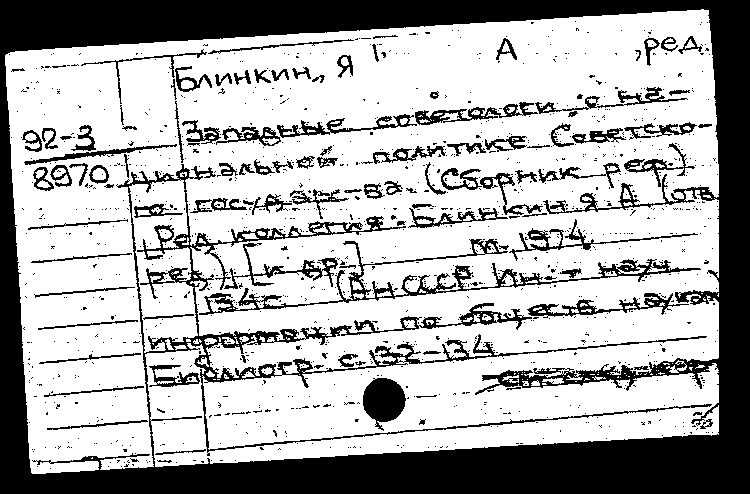 Блинкин, Я. А., ред.
92-3
8970
Западные советологи о на-
циональной политике Советско-
го государства. (Сборник реф.)
[Ред. коллегия: Блинкин Я. А. (отв.
ред.), [и др.] М., 1974
134с (АН СССР. Ин-т науч.
информации по обществ. наукам)
Библиогр. с. 132-134.
см. след. карт